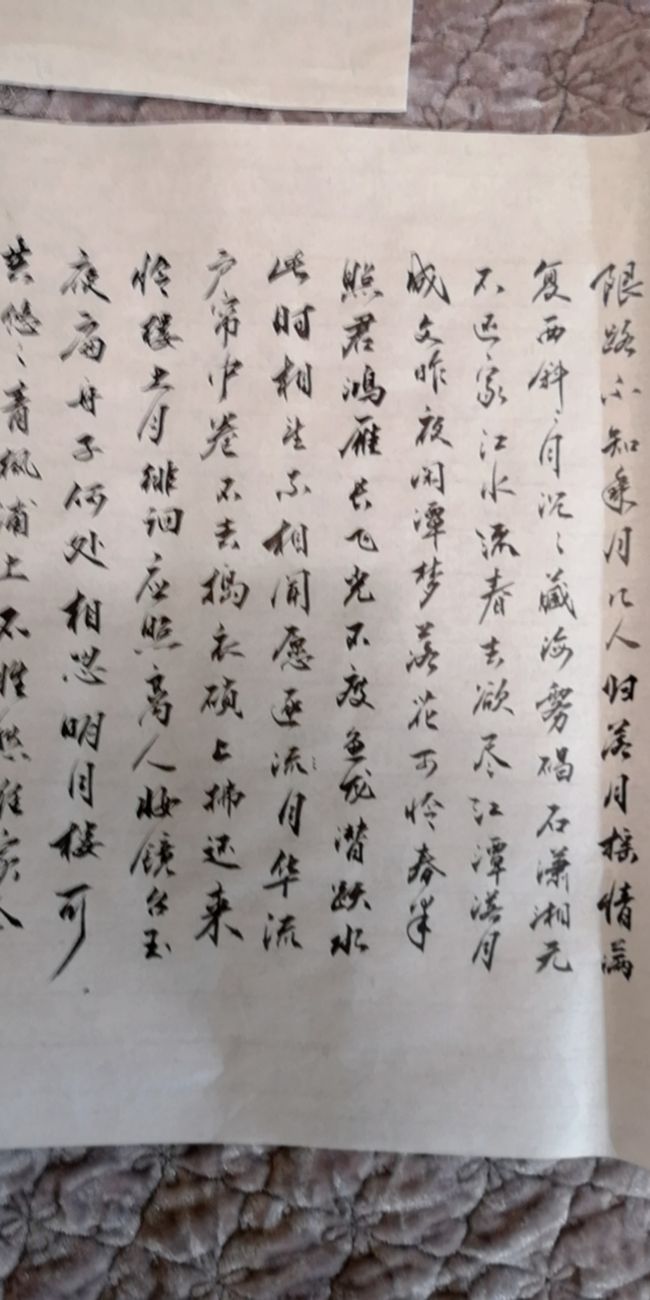 共悠〻青枫浦上不胜愁谁家今
夜扁舟子何处相思明月楼可
怜楼上月徘徊应照离人妆镜台玉
户帘中卷不去捣衣砧上拂还来
此时相望不相闻愿逐流月华流
照君鸿雁长飞光不度鱼龙潜跃水
成文昨夜闲潭梦落花可怜春半
不还家江水流春去欲尽江潭落月
复西斜〻月沉〻藏海雾碣石潇湘无
限路不知乘月几人归落月摇情满